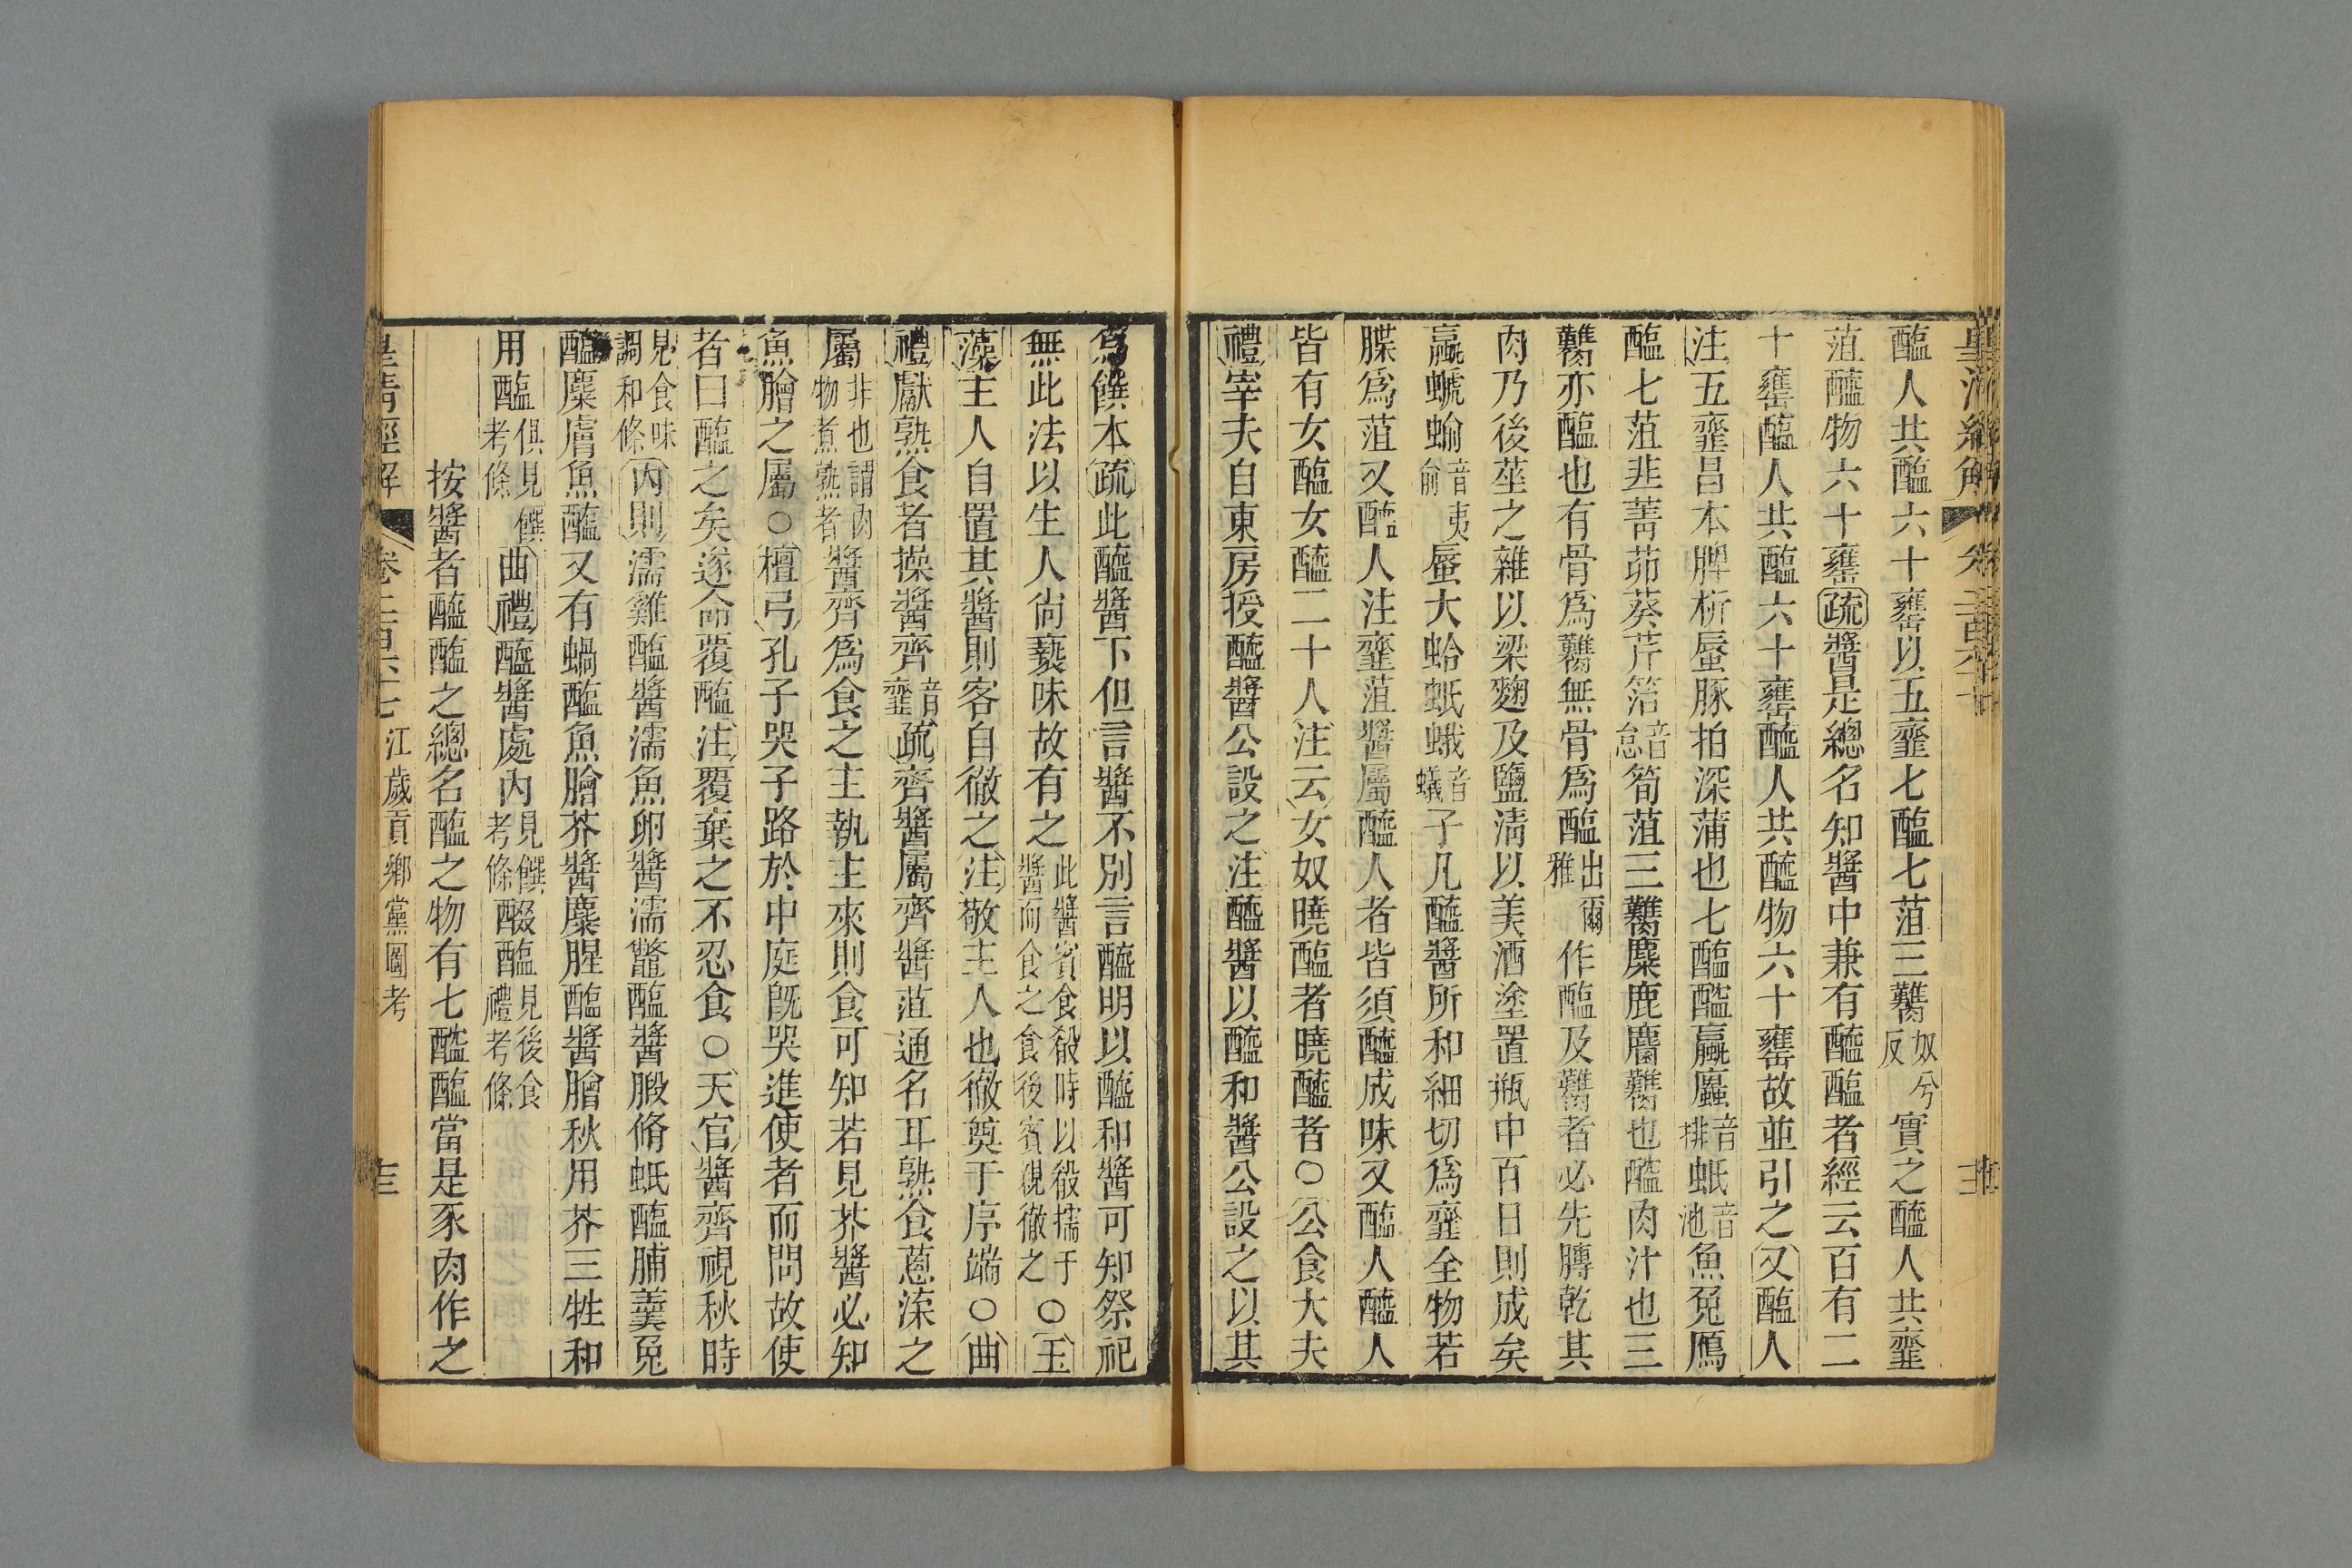 醢人共醢六十罋以五齏七醢七菹三臡奴兮反實之醯人共齏
菹醯物六十罋疏醬是總名知醬中兼有醯醢者經云百有二
十罋醢人共醢六十罋醯人共醯物六十罋故並引之又醢人
注五齏昌本脾析蜃豚拍深蒲也七醢醓蠃蠯音排蚳音池魚兔鴈
醢七菹韭菁茆葵芹箈音怠筍菹三臡麋鹿麕臡也醓肉汁也三
臡亦醢也有骨爲臡無骨爲醢出爾雅作醢及臡者必先膊乾其
肉乃後莝之雜以梁麴及鹽清以美酒塗置瓶中百日則成矣
蠃螔蝓音夷俞蜃大蛤蚳蛾音蟻子凡醯醬所和細切爲齏全物若
䐑爲菹又醯人注齏菹醬屬醯人者皆須醯成味又醢人醯人
皆有女醢女醯二十人注云女奴曉醢者曉醯者○公食大夫
禮宰夫自東房授醯醬公設之注醯醬以醯和醬公設之以其
爲饌本疏此醯醬下但言醬不別言醯明以醯和醬可知祭祀
無此法以生人尙褻味故有之此醬賓食殽時以殽擩于醬而食之食後賓親徹之○玉
藻主人自置其醬則客自徹之注敬主人也徹奠于序端○曲
禮獻熟食者操醬齊音齏疏齊醬屬齊醬菹通名耳熟食蔥渫之
屬非也謂肉物煮熟者醬齊爲食之主執主來則食可知若見芥醬必知
魚膾之屬○檀弓孔子哭子路於中庭旣哭進使者而問故使
者曰醢之矣遂命覆醢注覆棄之不忍食○天官醬齊視秋時
見食味調和條內則濡雞醢醬濡魚卵醬濡鼈醢醬腶脩蚳醢脯羹兔
醢麋膚魚醢又有蝸醢魚膾芥醬麋腥醢醬膾秋用芥三牲和
用醢俱見饌考條曲禮醯醬處內見饌考條醊醢見後食禮考條
按醬者醯醢之總名醢之物有七醓醢當是豕肉作之
皇清經解 卷二百六十七 江歲貢鄉黨圖考